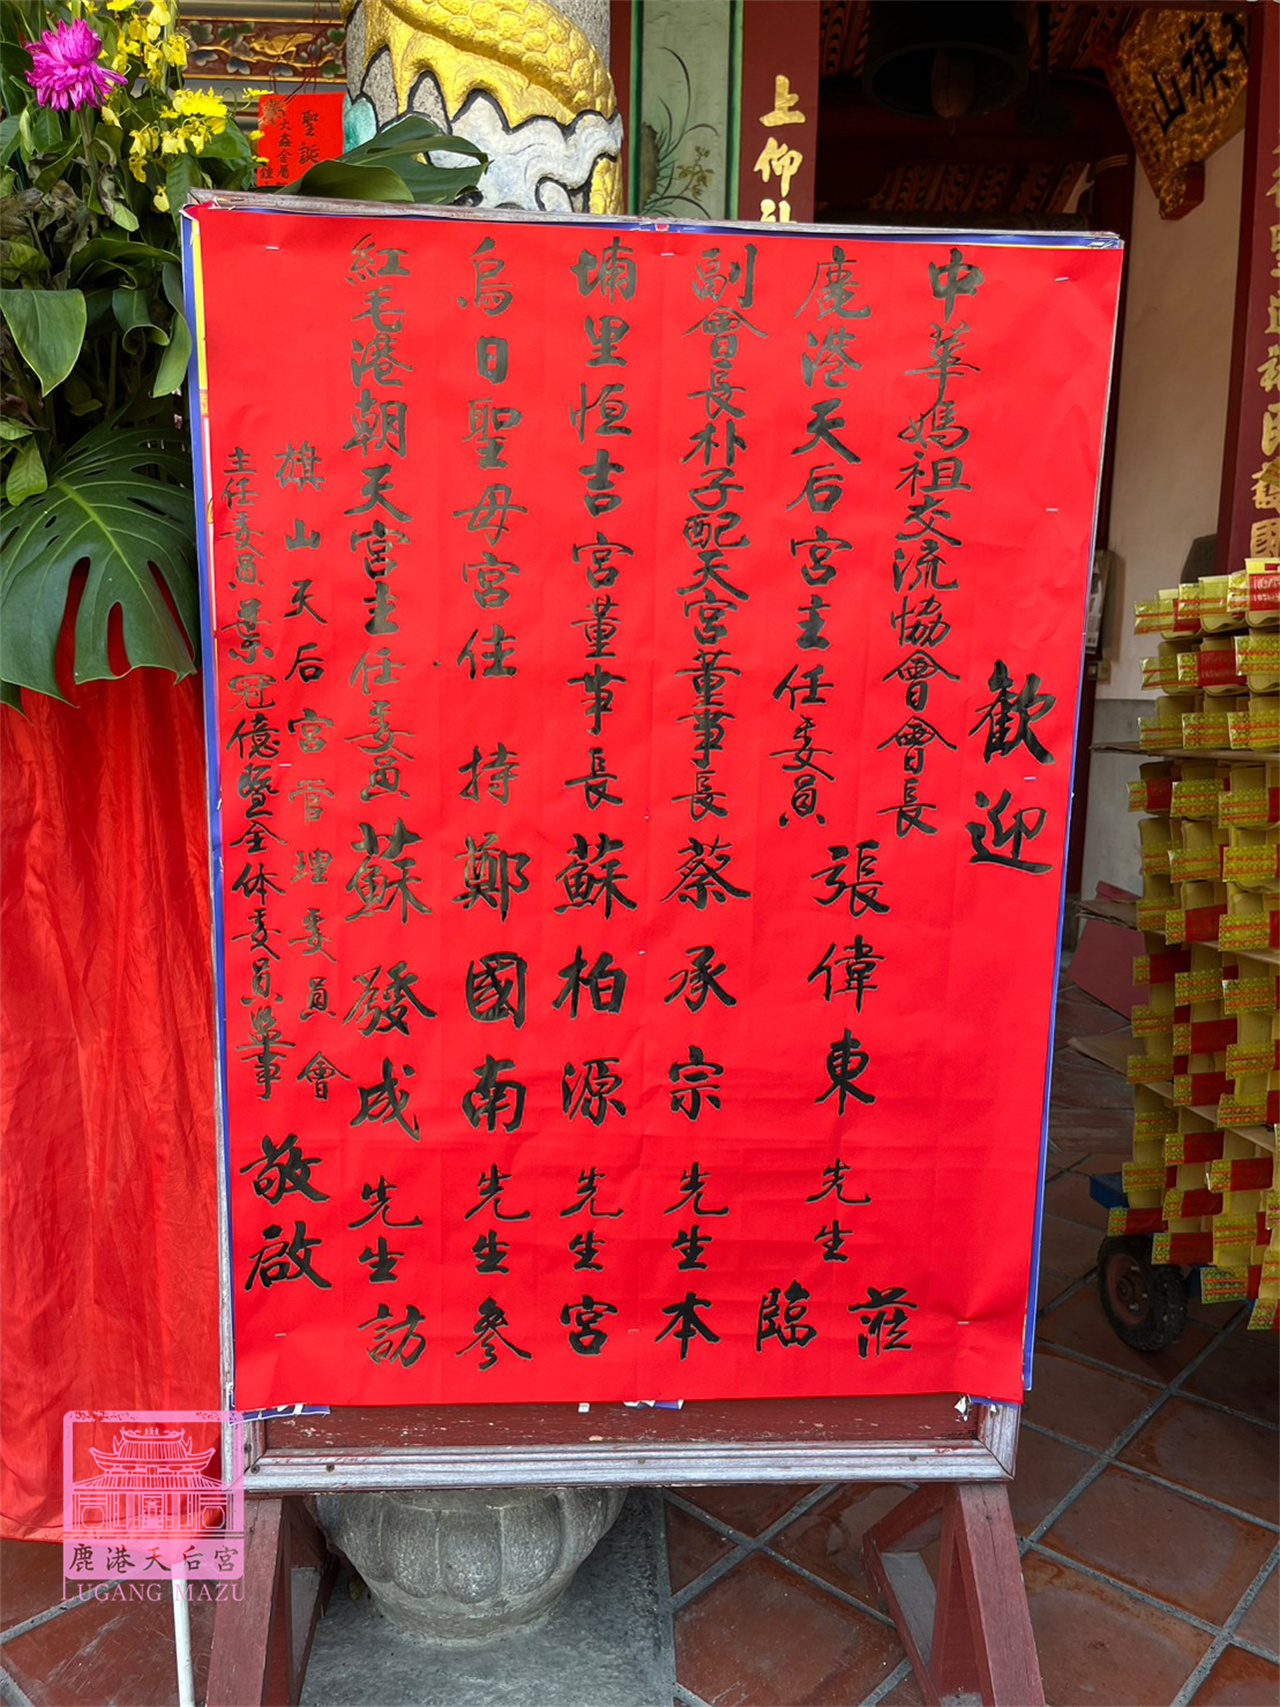 歡迎
中華媽祖交流協會會長
鹿港天后宮主任委員
張偉東先生
蒞臨
副會長朴子配天宮董事長蔡承宗先生本
埔里恒吉宮董事長蘇柏源先生宮
烏日聖母宮住持鄭國南先生參
紅毛港朝天宮主任委員蘇發成先生訪
旗山天后宮管理委員會
主任委員葉冠億暨全体委員監事
敬啟
聖誕
上仰
旗山
鹿港天后宮
LUGANG MAZU